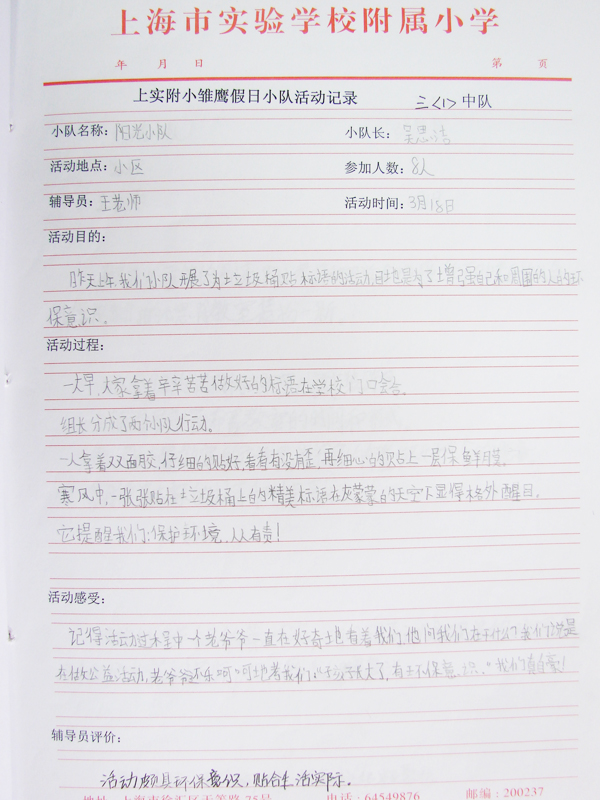 上海市实验学校附属小学
年 月 日 第 页
上实附小雏鹰假日小队活动记录 三<1>中队
小队名称：阳光小队 小队长：吴思洁
活动地点：小区 参加人数：8人
辅导员：王老师 活动时间：3月18日
活动目的：
昨天上午，我们小队开展了为垃圾桶贴标语的活动，目地是为了增强自己和周围的人的环
保意识。
活动过程：
一大早，大家拿着辛辛苦苦做好的标语在学校门口会合。
组长分成了两个小队行动。
一人拿着双面胶，仔细的贴好，看看有没有歪，再细心的贴上一层保鲜膜。
寒风中，一张张贴在垃圾桶上的精美标语在灰蒙蒙的天空下显得格外醒目。
它提醒我们：保护环境，人人有责！
活动感受：
记得活动过程中一个老爷爷一直在好奇地看着我们，他问我们在干什么？我们说是
在做公益活动，老爷爷乐呵呵地看着我们：“孩子长大了，有环保意识。”我们真自豪！
辅导员评价：
活动颇具环保意识，贴合生活实际。
地址：上海市徐汇区天等路75号 电话：64549876 邮编：200237